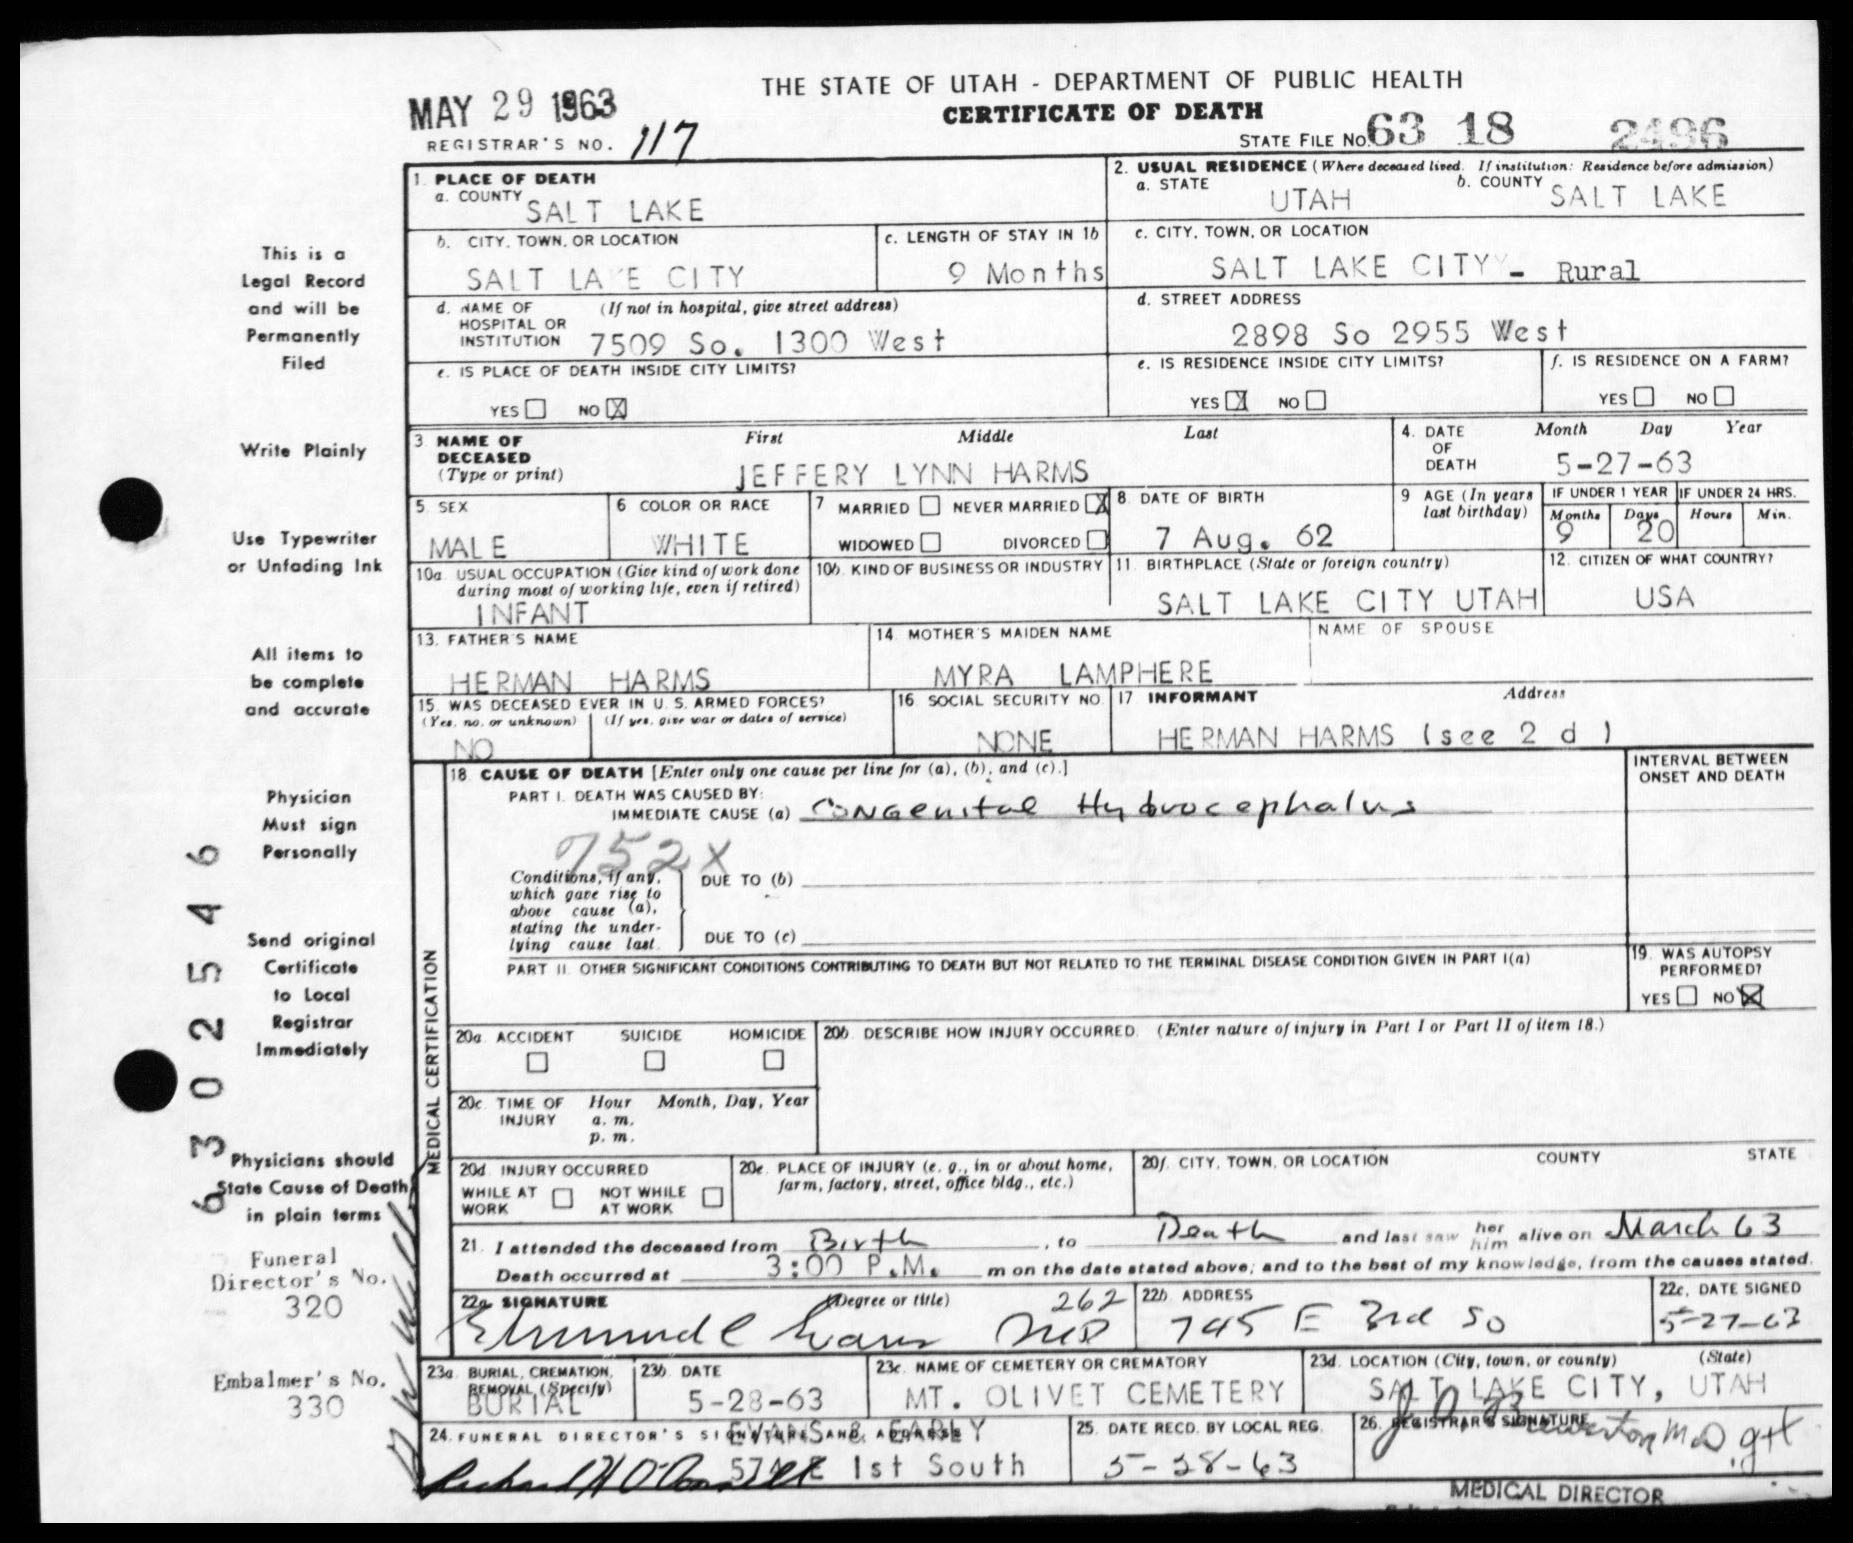 THE STATE OF UTAH - DEPARTMENT OF PUBLIC HEALTH
MAY 29 1963
CERTIFICATE OF DEATH
REGISTRAR'S NO. 117
STATE FILE NO. 63 18 2496
1. PLACE OF DEATH
a. COUNTY SALT LAKE
2. USUAL RESIDENCE (Where deceased lived. If institution: Residence before admission)
a. STATE UTAH b. COUNTY SALT LAKE
b. CITY, TOWN, OR LOCATION SALT LAKE CITY
c. LENGTH OF STAY IN 1b 9 Months
c. CITY, TOWN, OR LOCATION SALT LAKE CITY - Rural
d. NAME OF HOSPITAL OR INSTITUTION (If not in hospital, give street address)
7509 So. 1300 West
d. STREET ADDRESS
2898 So 2955 West
e. IS PLACE OF DEATH INSIDE CITY LIMITS?
YES NO X
e. IS RESIDENCE INSIDE CITY LIMITS?
YES X NO
f. IS RESIDENCE ON A FARM?
YES NO
3. NAME OF DECEASED (Type or print) First Middle Last
JEFFERY LYNN HARMS
4. DATE OF DEATH Month Day Year
5-27-63
5. SEX MALE
6 COLOR OR RACE WHITE
7 MARRIED NEVER MARRIED X
WIDOWED DIVORCED
8. DATE OF BIRTH 7 Aug. 62
9 AGE (In years last birthday)
IF UNDER 1 YEAR Months 9 Days 20
IF UNDER 24 HRS. Hours Min.
10a. USUAL OCCUPATION (Give kind of work done during most of working life, even if retired)
INFANT
10b. KIND OF BUSINESS OR INDUSTRY
11. BIRTHPLACE (State or foreign country)
SALT LAKE CITY UTAH
12. CITIZEN OF WHAT COUNTRY?
USA
13. FATHER'S NAME
HERMAN HARMS
14. MOTHER'S MAIDEN NAME
MYRA LAMPHERE
NAME OF SPOUSE
15. WAS DECEASED EVER IN U. S. ARMED FORCES?
(Yes, no, or unknown) (If yes, give war or dates of service)
NO
16 SOCIAL SECURITY NO.
NONE
17 INFORMANT Address
HERMAN HARMS (see 2 d )
18. CAUSE OF DEATH [Enter only one cause per line for (a), (b), and (c).]
INTERVAL BETWEEN ONSET AND DEATH
PART I. DEATH WAS CAUSED BY:
IMMEDIATE CAUSE (a) Congenital Hydrocephalus
752X
Conditions, if any, which gave rise to above cause (a), stating the underlying cause last.
DUE TO (b)
DUE TO (c)
PART II. OTHER SIGNIFICANT CONDITIONS CONTRIBUTING TO DEATH BUT NOT RELATED TO THE TERMINAL DISEASE CONDITION GIVEN IN PART I(a)
19. WAS AUTOPSY PERFORMED?
YES NO X
MEDICAL CERTIFICATION
20a. ACCIDENT SUICIDE HOMICIDE
20b. DESCRIBE HOW INJURY OCCURRED. (Enter nature of injury in Part I or Part II of item 18.)
20c. TIME OF INJURY Hour Month, Day, Year
a. m.
p. m.
20d. INJURY OCCURRED
WHILE AT WORK NOT WHILE AT WORK
20e. PLACE OF INJURY (e. g., in or about home, farm, factory, street, office bldg., etc.)
20f. CITY, TOWN, OR LOCATION COUNTY STATE
21. I attended the deceased from Birth, to Death and last saw her him alive on March 63
Death occurred at 3:00 P.M. m on the date stated above; and to the best of my knowledge, from the causes stated.
22a. SIGNATURE (Degree or title) 262
Evans MD
22b. ADDRESS
745 E 3rd So
22c. DATE SIGNED
5-27-63
23a. BURIAL, CREMATION, REMOVAL (Specify)
BURIAL
23b. DATE
5-28-63
23c. NAME OF CEMETERY OR CREMATORY
MT. OLIVET CEMETERY
23d. LOCATION (City, town, or county) (State)
SALT LAKE CITY, UTAH
24. FUNERAL DIRECTOR'S SIGNATURE AND ADDRESS
EVANS & EARLY
574 E 1st South
25. DATE RECD. BY LOCAL REG.
5-28-63
26. REGISTRAR'S SIGNATURE
MEDICAL DIRECTOR
This is a
Legal Record
and will be
Permanently
Filed
Write Plainly
Use Typewriter
or Unfading Ink
All items to
be complete
and accurate
Physician
Must sign
Personally
Send original
Certificate
to Local
Registrar
Immediately
Physicians should
State Cause of Death
in plain terms
Funeral
Director's No.
320
Embalmer's No.
330
63025546